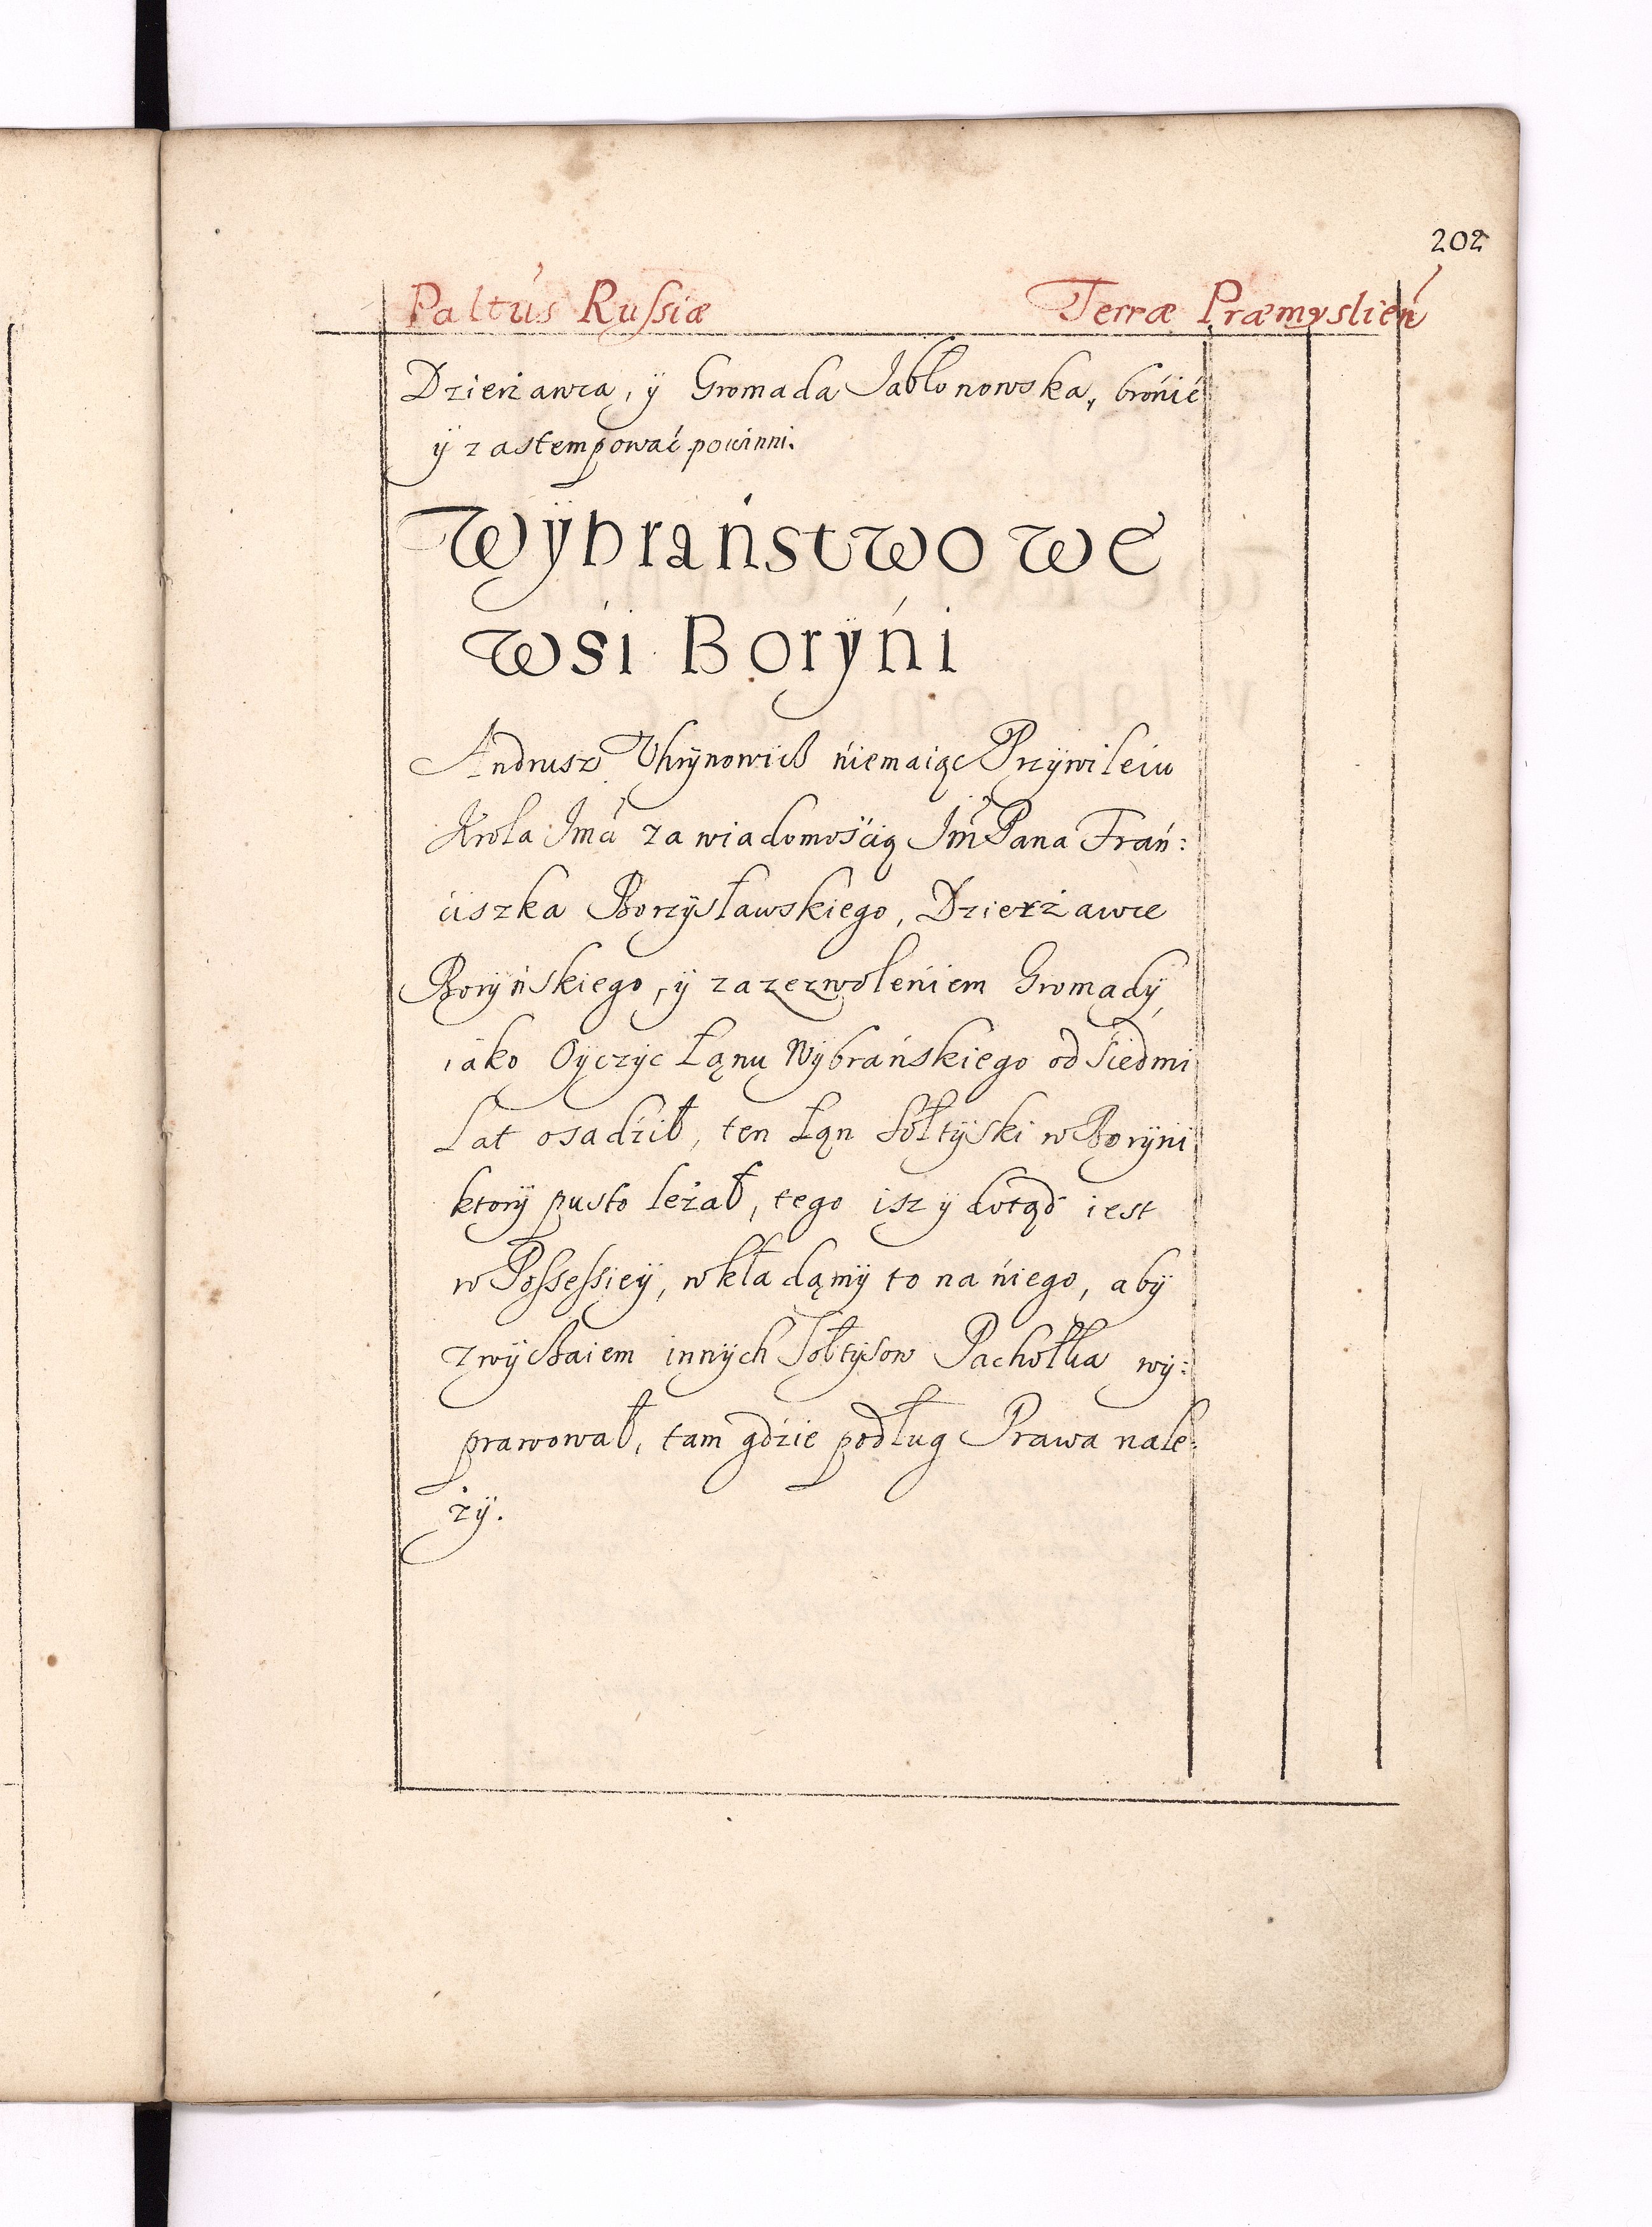 202
Paltús Russiæ Terræ Præmyslień
Dzierżawca, ÿ Gromada Jabłonowska, brónić
ÿ zastempować powinni.
Wÿbráństwo we
wśi Borÿńi
Andrusz Uhrÿnowicz ńiemaiąc Przÿwileiu
Krola Jmći za wiadomośćią Jm̃ Pana Frań:
ciszka Borzÿsławskiego, Dzierżawce
Borÿńskiego, ÿ za zezwoleńiem Gromadÿ,
iáko Oÿczÿc Łąnu Wÿbráńskiego od Śiedmi
Lat osadźił, ten Łąn Sołtÿski w Borÿńi
ktorÿ pusto leżał, tego isz ÿ dotąd iest
w Possessieÿ, wkładąmÿ to na ńiego, abÿ
zwÿczaiem innÿch Sołtÿsow Pachołka wÿ:
prawował, tam gdźie podług Prawa nale:
żÿ.